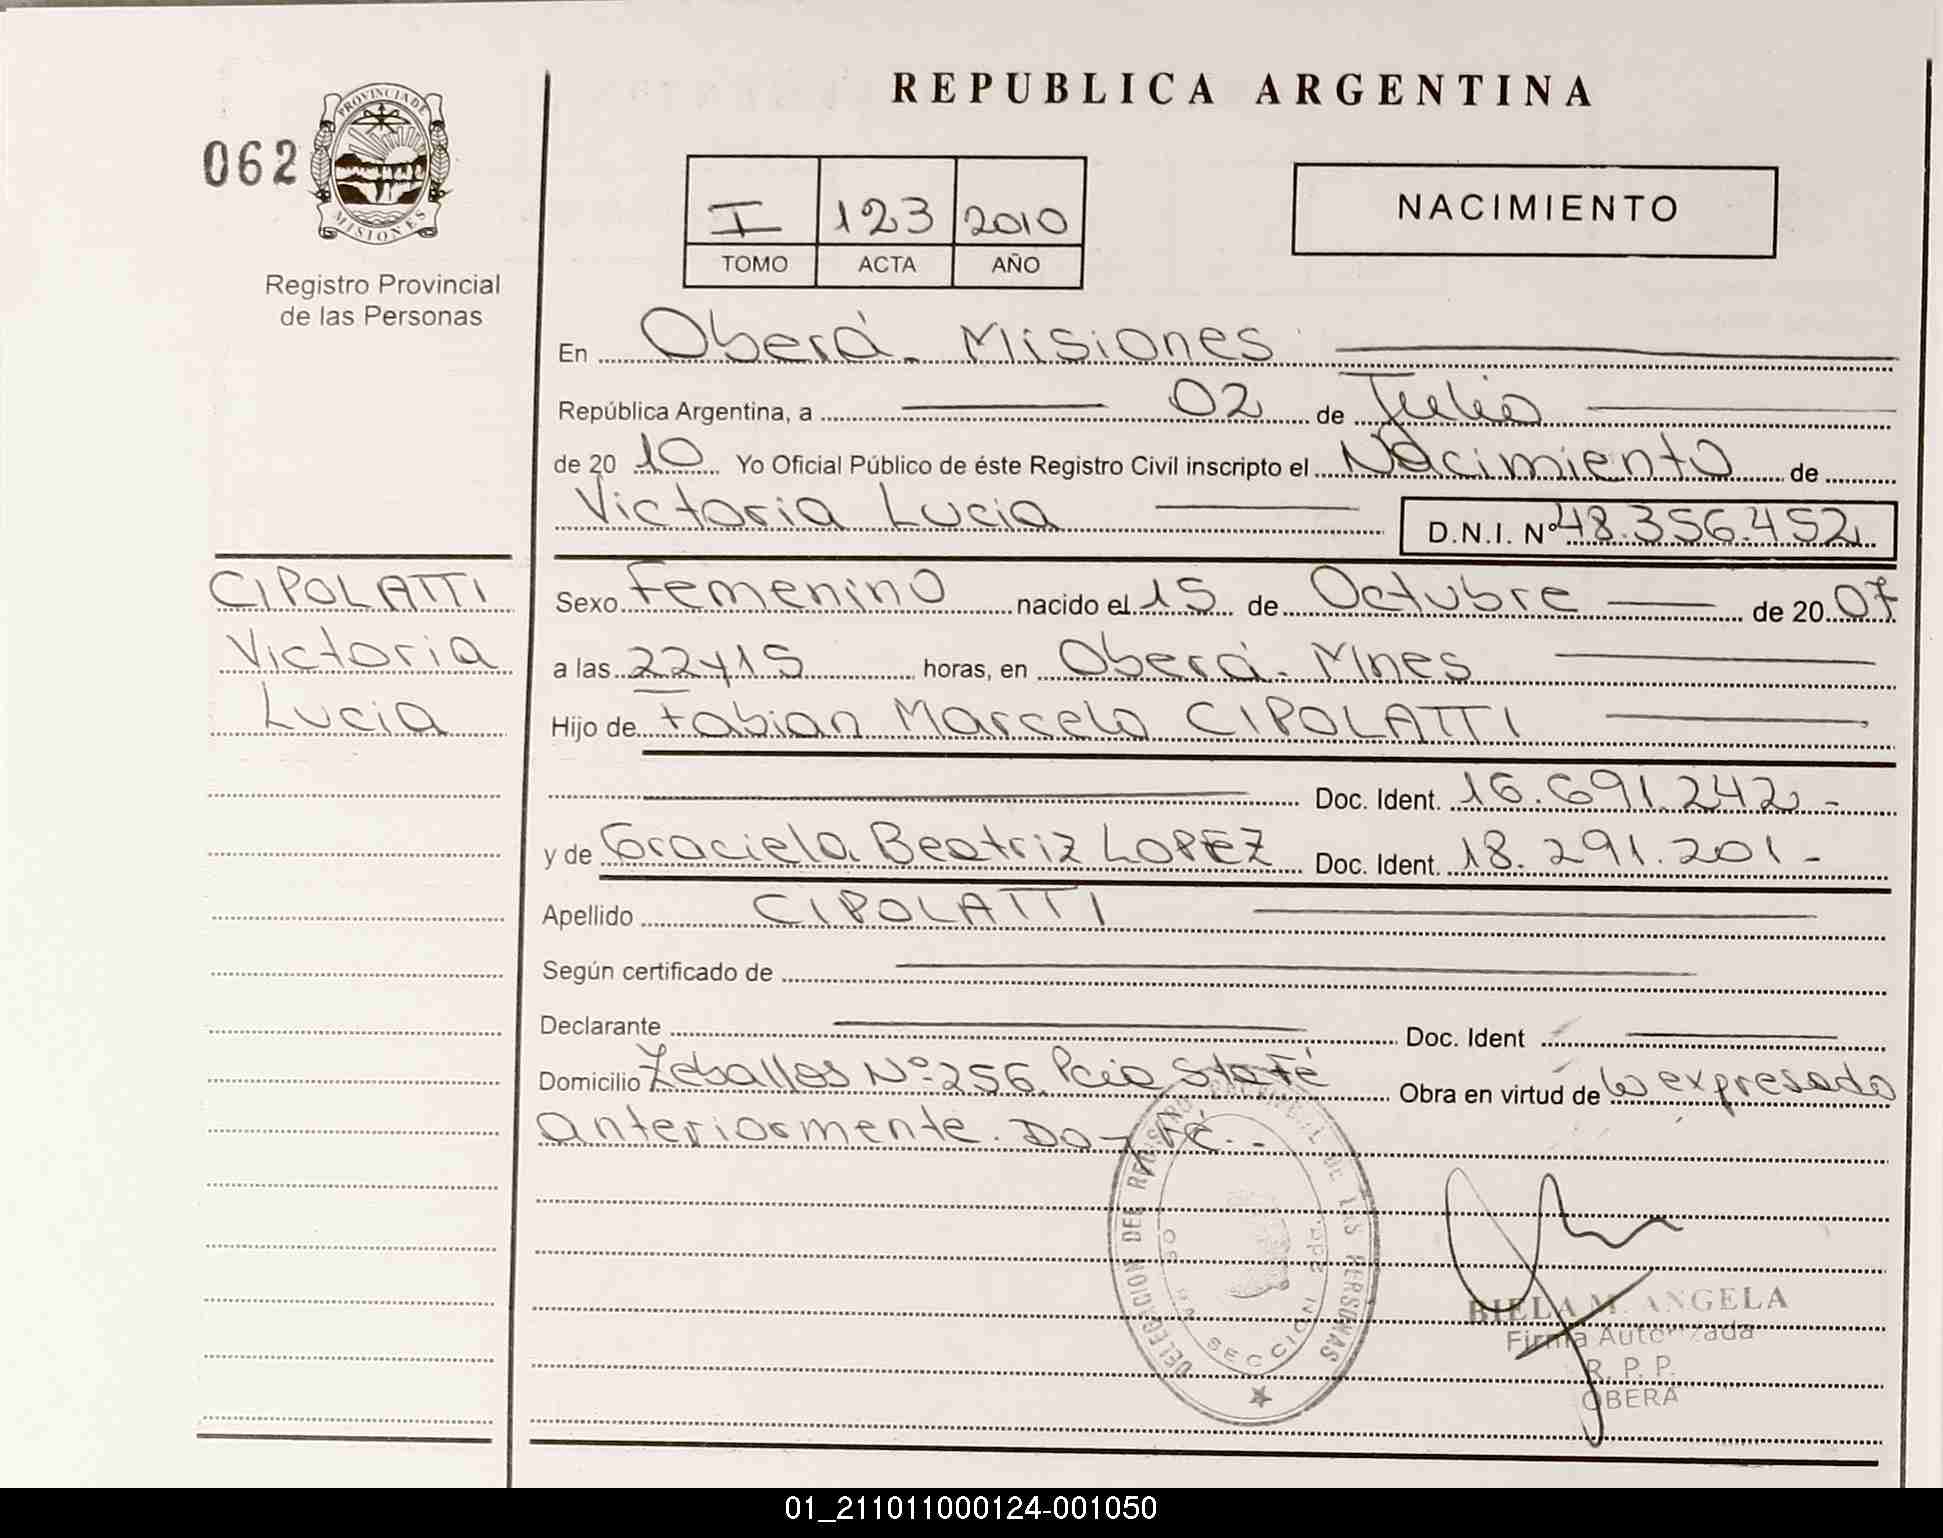 REPUBLICA ARGENTINA
062
PROVINCIA DE
MISIONES
Registro Provincial
de las Personas
I 123 2010
TOMO ACTA AÑO
NACIMIENTO
En Oberá - Misiones
República Argentina, a 02 de Julio
de 20 10 Yo Oficial Público de éste Registro Civil inscripto el Nacimiento de
Victoria Lucia D.N.I. Nº 48.356.452
CIPOLATTI
Victoria
Lucia
Sexo Femenino nacido el 15 de Octubre de 20 07
a las 22 y 15 horas, en Oberá - Mnes
Hijo de Fabian Marcelo CIPOLATTI
Doc. Ident. 16.691.242 -
y de Graciela Beatriz LOPEZ Doc. Ident. 18.291.201 -
Apellido CIPOLATTI
Según certificado de
Declarante Doc. Ident
Domicilio Zeballos Nº 256. Pcia Sta Fé Obra en virtud de lo expresado
anteriormente. Doy Fé. -
DELEGACION DEL REGISTRO PROVINCIAL DE LAS PERSONAS
SECCION 2da.
BIELA M. ANGELA
Firma Autorizada
R. P. P.
OBERA
01_211011000124-001050